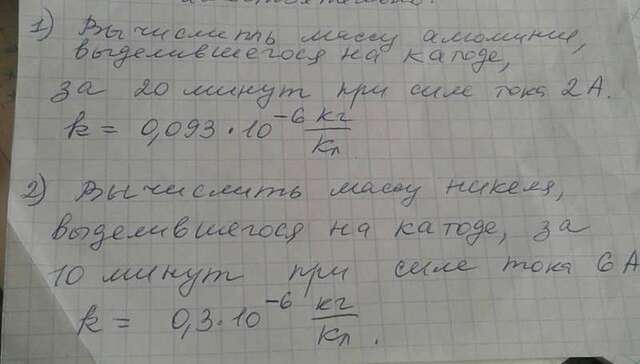 1) Вычислить массу алюминия,
выделившегося на катоде,
за 20 минут при силе тока 2 А.
k = 0,093 · 10⁻⁶ кг/Кл
2) Вычислить массу никеля,
выделившегося на катоде, за
10 минут при силе тока 6 А
k = 0,3 · 10⁻⁶ кг/Кл.